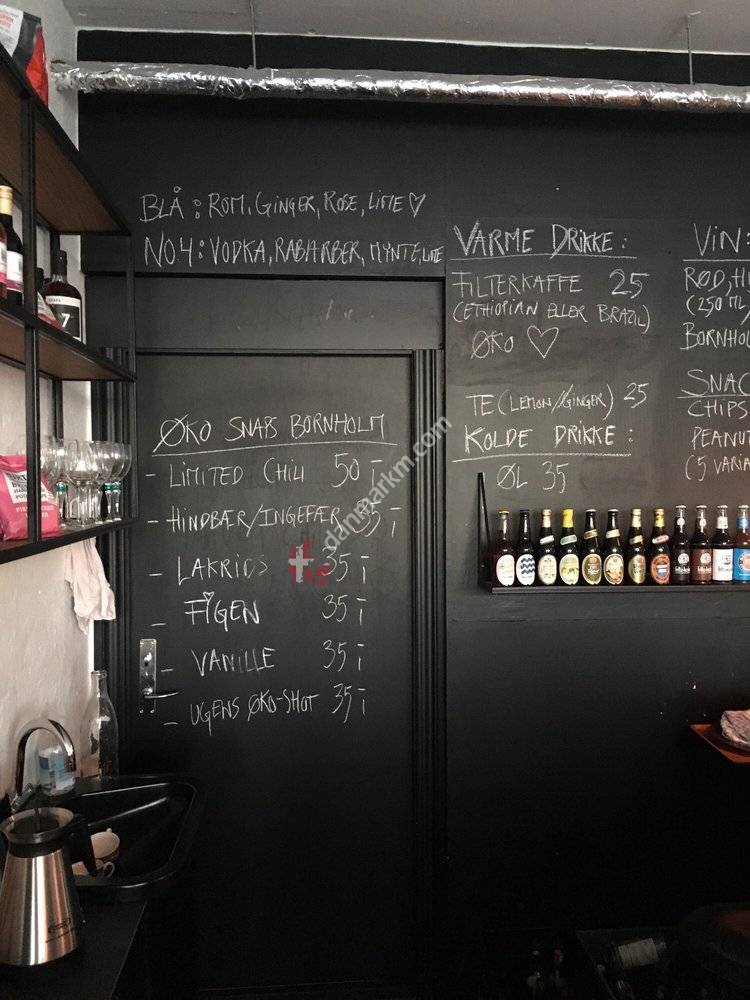 BLÅ: ROM, GINGER, ROSE, LIME ♡
NO4: VODKA, RABARBER, MYNTE, LIME
ØKO SNAPS BORNHOLM
- LIMITED CHILI 50,-
- HINDBÆR/INGEFÆR 35,-
- LAKRIDS 35,-
- FIGEN 35,-
- VANILLE 35,-
- UGENS ØKO-SHOT 35,-
VARME DRIKKE:
FILTERKAFFE 25
(ETHIOPIAN ELLER BRAZIL)
ØKO ♡
TE (LEMON/GINGER) 25
KOLDE DRIKKE:
ØL 35
VIN:
RØD, H
(250 ML
BORNHOL
SNAC
CHIPS
PEANUT
(5 VARIA
danmarkm.com
7